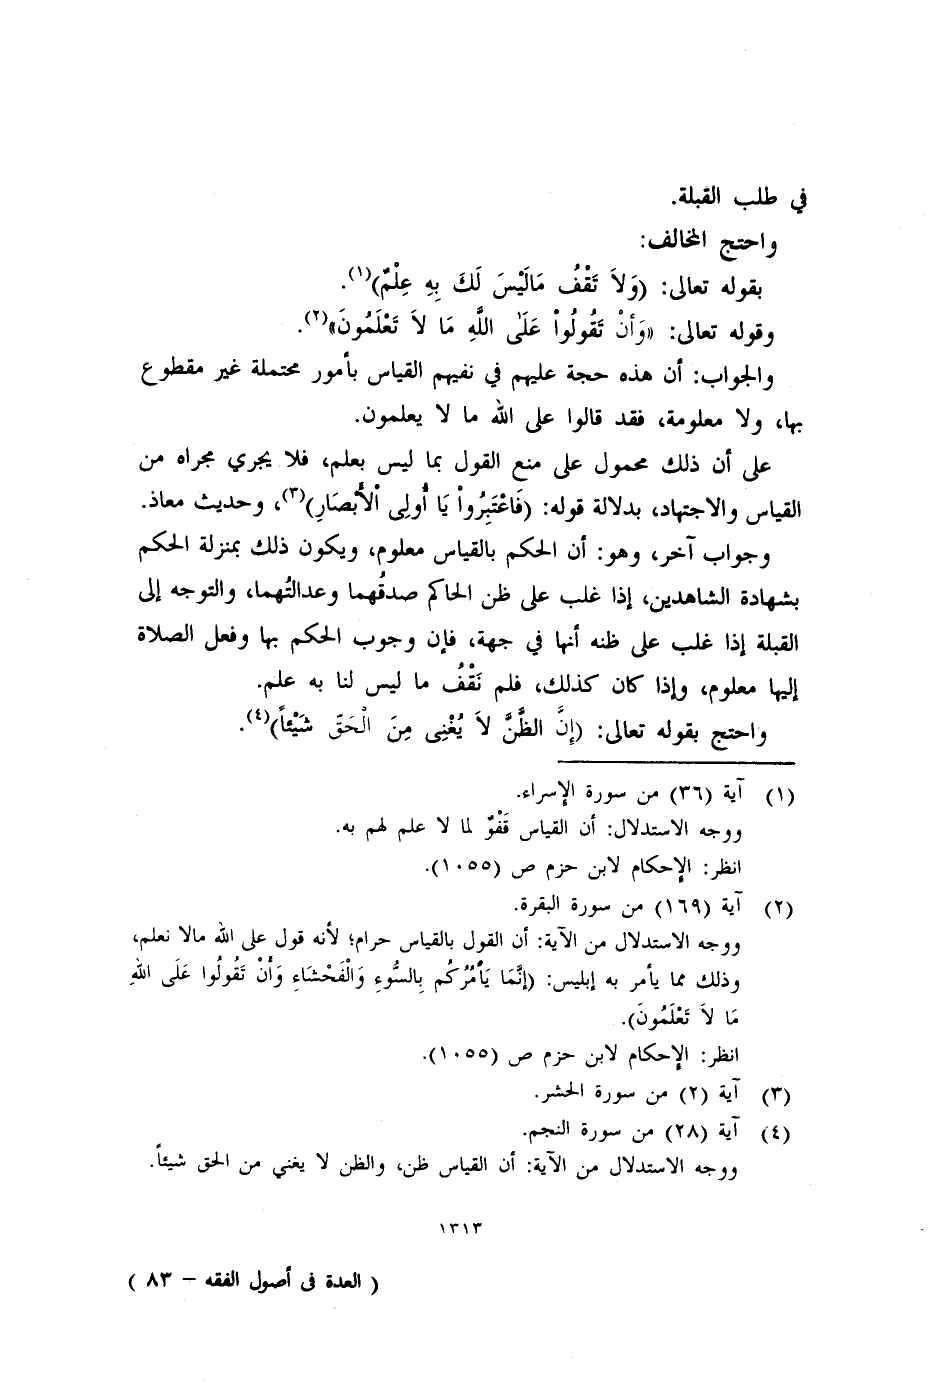 في طلب القبلة.
واحتج المخالف:
بقوله تعالى: (وَلاَ تَقْفُ مَالَيْسَ لَكَ بِهِ عِلْمٌ)(١).
وقوله تعالى: «وَأنْ تَقُولُواْ عَلَى اللَّهِ مَا لاَ تَعْلَمُونَ»(٢).
والجواب: أن هذه حجة عليهم في نفيهم القياس بأمور محتملة غير مقطوع
بها، ولا معلومة، فقد قالوا على الله ما لا يعلمون.
على أن ذلك محمول على منع القول بما ليس بعلم، فلا يجري مجراه من
القياس والاجتهاد، بدلالة قوله: (فَاعْتَبِرُواْ يَا أُولِى الْأَبْصَارِ)(٣)، وحديث معاذ.
وجواب آخر، وهو: أن الحكم بالقياس معلوم، ويكون ذلك بمنزلة الحكم
بشهادة الشاهدين، إذا غلب على ظن الحاكم صدقُهما وعدالتُهما، والتوجه إلى
القبلة إذا غلب على ظنه أنها في جهة، فإن وجوب الحكم بها وفعل الصلاة
إليها معلوم، وإذا كان كذلك، فلم نَقْفُ ما ليس لنا به علم.
واحتج بقوله تعالى: (إِنَّ الظَّنَّ لاَ يُغْنِى مِنَ الْحَقّ شَيْئاً)(٤).
(١) آية (٣٦) من سورة الإسراء.
ووجه الاستدلال: أن القياس قَفْوٌ لما لا علم لهم به.
انظر: الإحكام لابن حزم ص (١٠٥٥).
(٢) آية (١٦٩) من سورة البقرة.
ووجه الاستدلال من الآية: أن القول بالقياس حرام؛ لأنه قول على الله مالا نعلم،
وذلك مما يأمر به إبليس: (إنَّمَا يَأمُرُكُم بِالسُّوءِ وَالْفَحْشَاءِ وَأَنْ تَقُولُوا عَلَى اللهِ
مَا لاَ تَعْلَمُونَ).
انظر: الإحكام لابن حزم ص (١٠٥٥).
(٣) آية (٢) من سورة الحشر.
(٤) آية (٢٨) من سورة النجم.
ووجه الاستدلال من الآية: أن القياس ظن، والظن لا يغني من الحق شيئاً.
١٣١٣
( العدة فى أصول الفقه - ٨٣ )